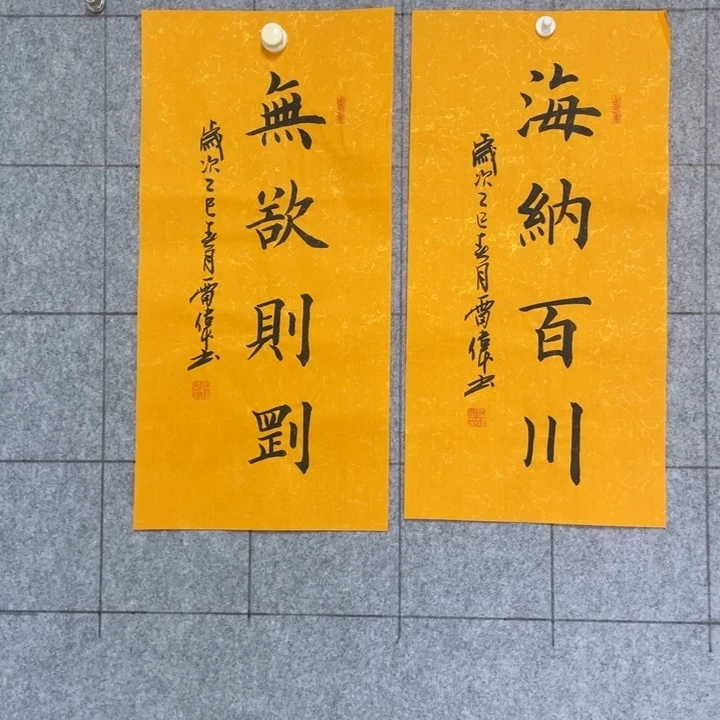 海納百川
歲次乙巳春月雷偉書
無欲則剛
歲次乙巳春月雷偉書